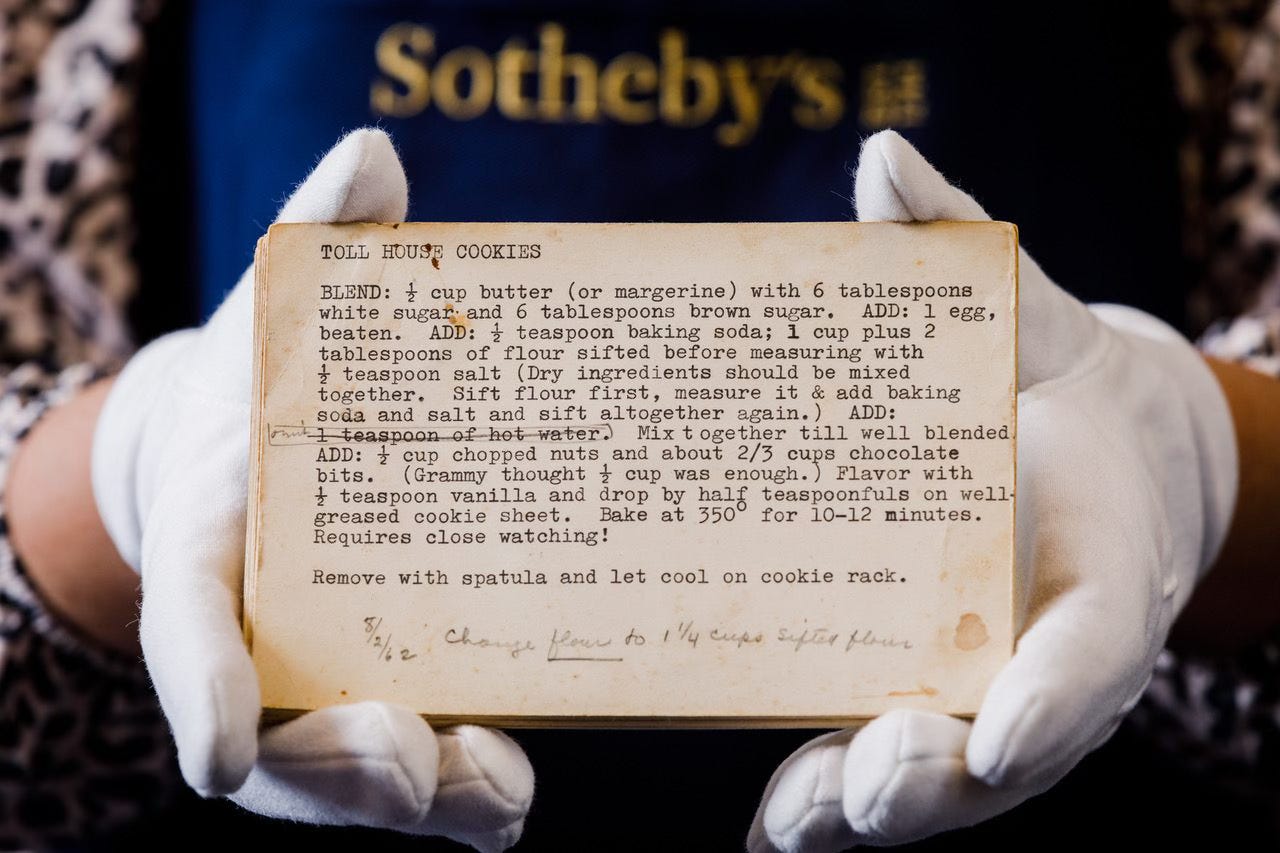 Sotheby's
TOLL HOUSE COOKIES
BLEND: ½ cup butter (or margerine) with 6 tablespoons
white sugar and 6 tablespoons brown sugar. ADD: 1 egg,
beaten. ADD: ½ teaspoon baking soda; 1 cup plus 2
tablespoons of flour sifted before measuring with
½ teaspoon salt (Dry ingredients should be mixed
together. Sift flour first, measure it & add baking
soda and salt and sift altogether again.) ADD:
omit 1 teaspoon of hot water. Mix together till well blended
ADD: ½ cup chopped nuts and about 2/3 cups chocolate
bits. (Grammy thought ½ cup was enough.) Flavor with
½ teaspoon vanilla and drop by half teaspoonfuls on well-
greased cookie sheet. Bake at 350° for 10-12 minutes.
Requires close watching!
Remove with spatula and let cool on cookie rack.
8/2/62 Change flour to 1 1/4 cups sifted flour